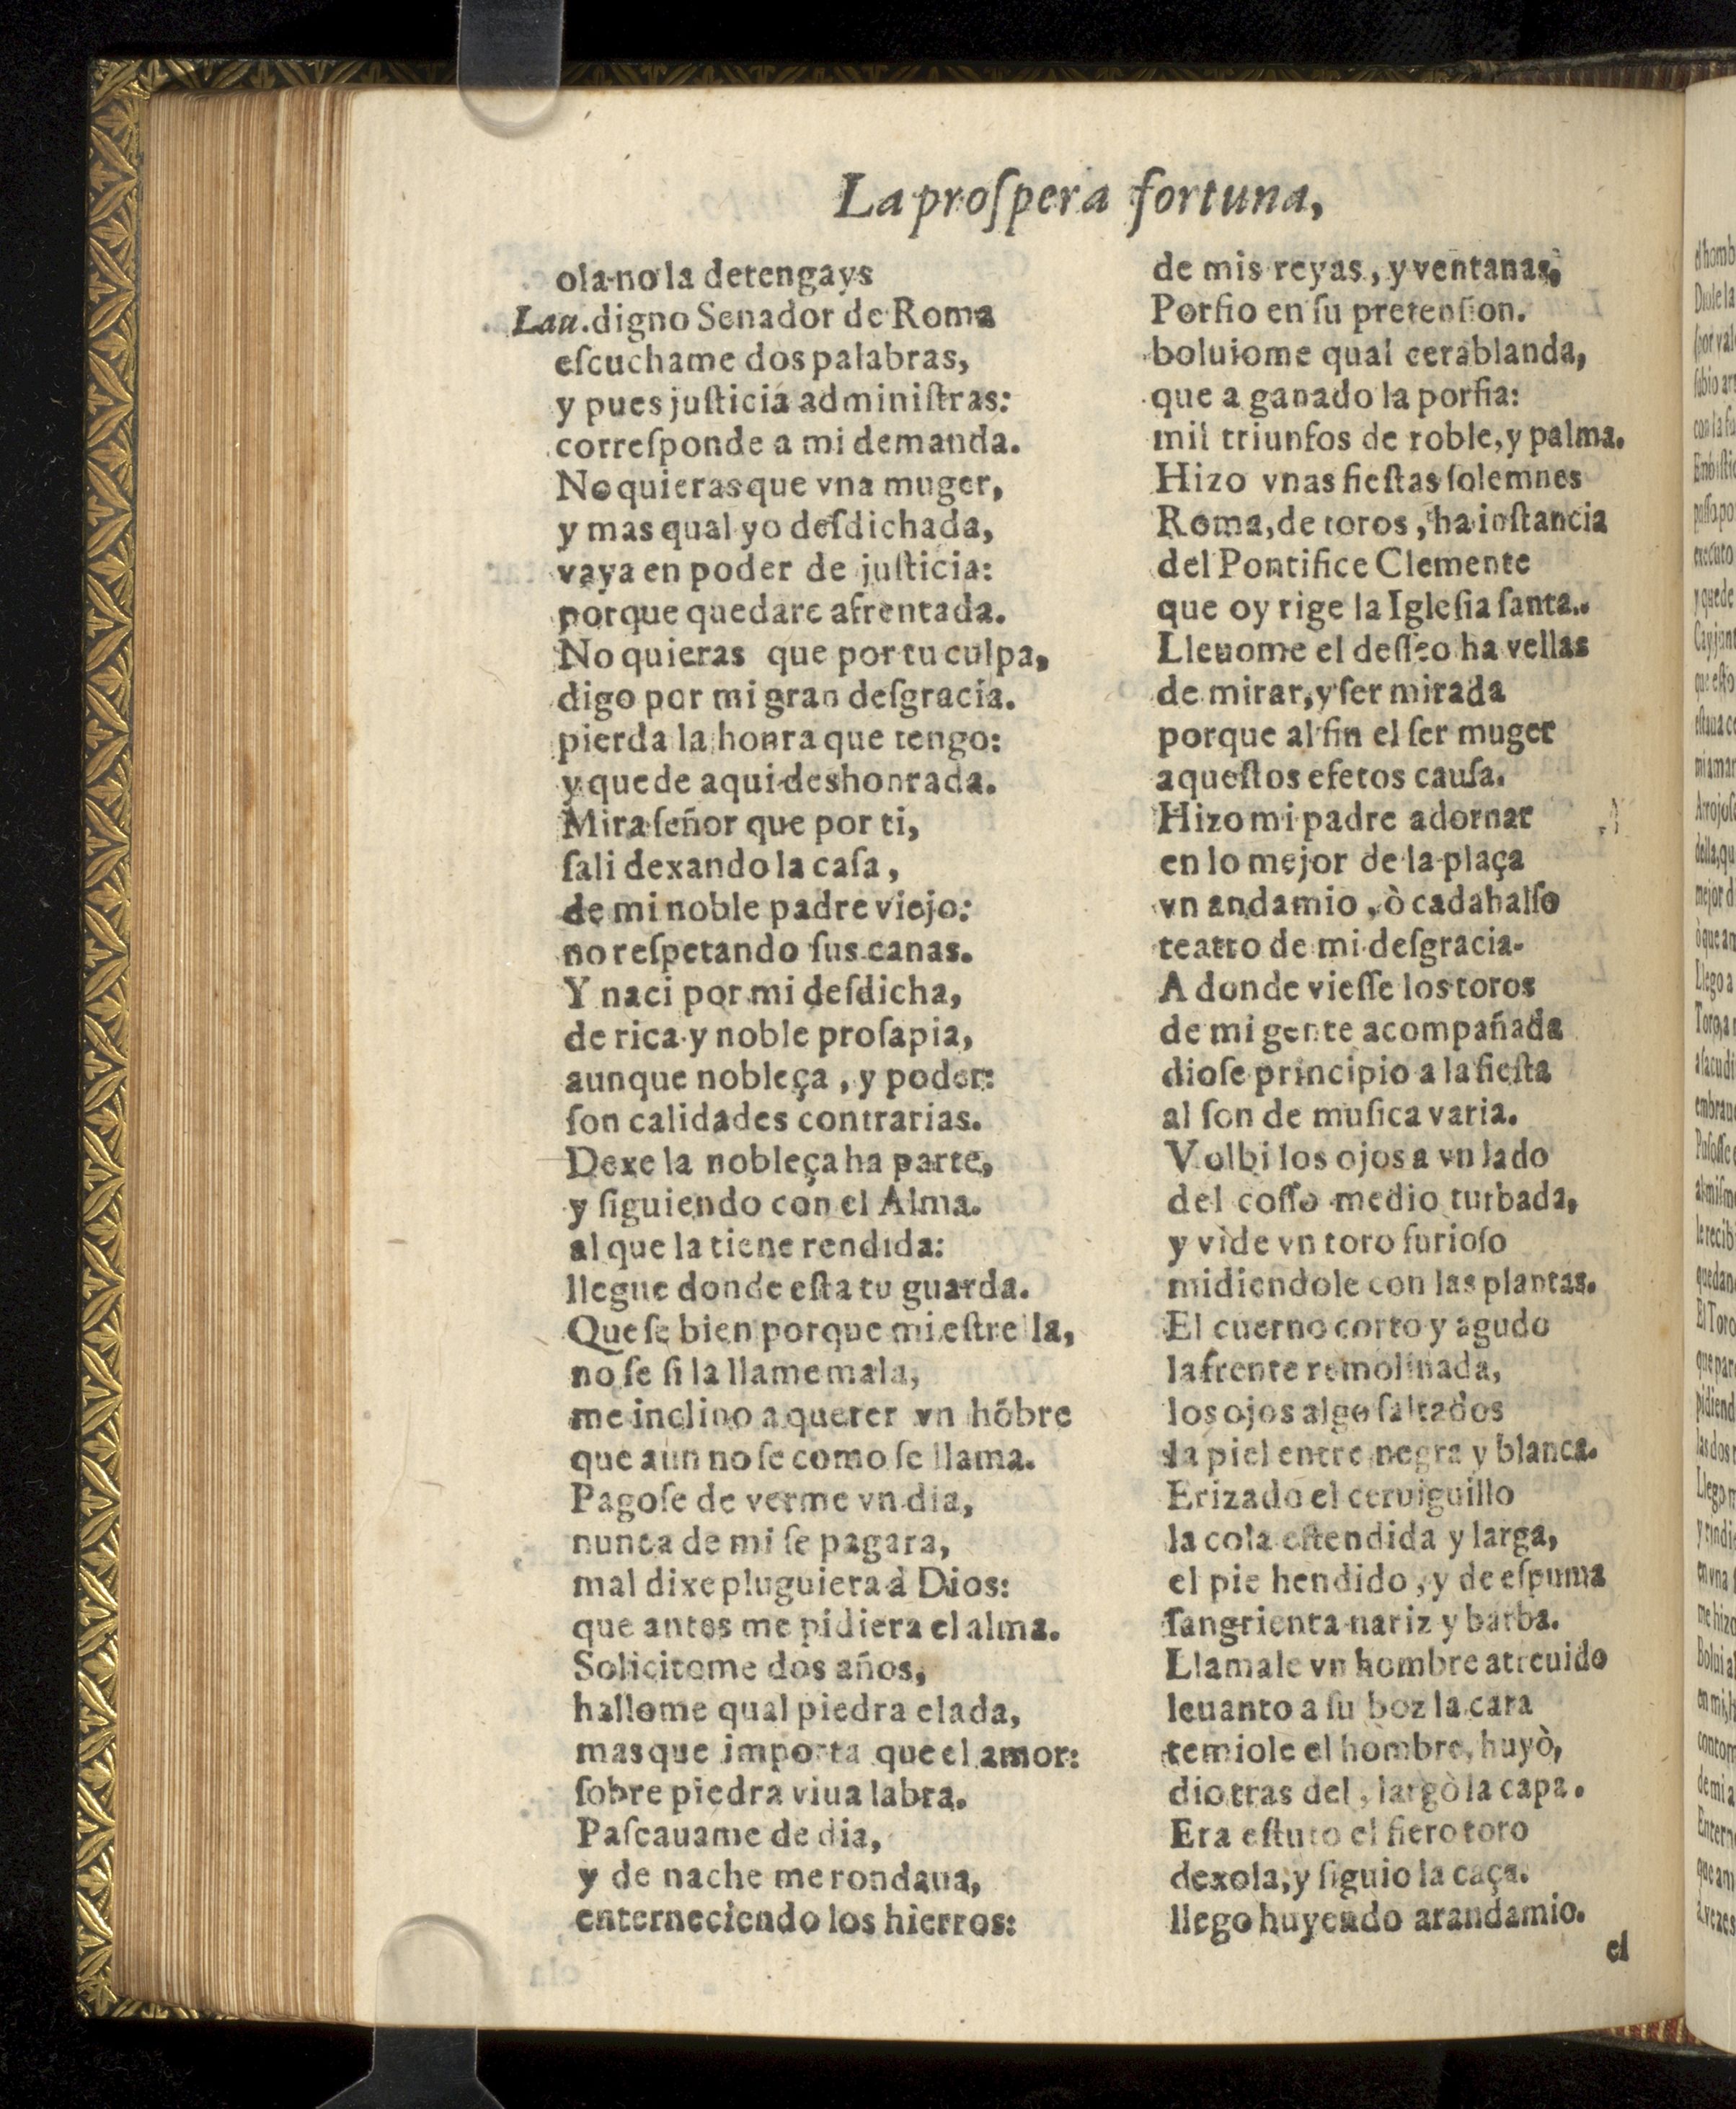 La proſpera fortuna,
ola no la detengays
Lau. digno Senador de Roma
eſcuchame dos palabras,
y pues juſticia adminiſtras:
correſponde a mi demanda.
No quieras que vna muger,
y mas qual yo deſdichada,
vaya en poder de juſticia:
porque quedare afrentada.
No quieras que por tu culpa,
digo por mi gran deſgracia.
pierda la honra que tengo:
y quede aqui deshonrada.
Mira ſeñor que por ti,
ſali dexando la caſa,
de mi noble padre viejo:
no reſpetando ſus canas.
Y naci por mi deſdicha,
de rica y noble proſapia,
aunque nobleça, y poder:
ſon calidades contrarias.
Dexe la nobleça ha parte,
y ſiguiendo con el Alma.
al que la tiene rendida:
llegue donde eſta tu guarda.
Que ſe bien porque mi eſtrella,
no ſe ſi la llame mala,
me inclino a querer vn hõbre
que aun no ſe como ſe llama.
Pagoſe de verme vn dia,
nunca de mi ſe pagara,
mal dixe pluguiera à Dios:
que antes me pidiera el alma.
Solicitome dos años,
hallome qual piedra elada,
mas que importa que el amor:
ſobre piedra viua labra.
Paſeauame de dia,
y de nache me rondaua,
enterneciendo los hierros:
de mis reyas, y ventanas,
Porfio en ſu pretenſion.
boluiome qual cera blanda,
que a ganado la porfia:
mil triunfos de roble, y palma.
Hizo vnas fieſtas ſolemnes
Roma, de toros, ha inſtancia
del Pontifice Clemente
que oy rige la Igleſia ſanta.
Lleuome el deſſeo ha vellas
de mirar, y ſer mirada
porque al fin el ſer muger
aqueſtos efetos cauſa.
Hizo mi padre adornar
en lo mejor de la plaça
vn andamio, ò cadahalſo
teatro de mi deſgracia.
A donde vieſſe los toros
de mi gente acompañada
dioſe principio a la fieſta
al ſon de muſica varia.
Volbi los ojos a vn lado
del coſſo medio turbada,
y vide vn toro furioſo
midiendole con las plantas.
El cuerno corto y agudo
la frente remolinada,
los ojos algo ſaltados
la piel entre negra y blanca.
Erizado el ceruiguillo
la cola eſtendida y larga,
el pie hendido, y de eſpuma
ſangrienta nariz y barba.
Llamale vn hombre atreuido
leuanto a ſu boz la cara
temiole el hombre, huyò,
dio tras del, largò la capa.
Era eſtuto el fiero toro
dexola, y ſiguio la caça.
llego huyendo arandamio.
el